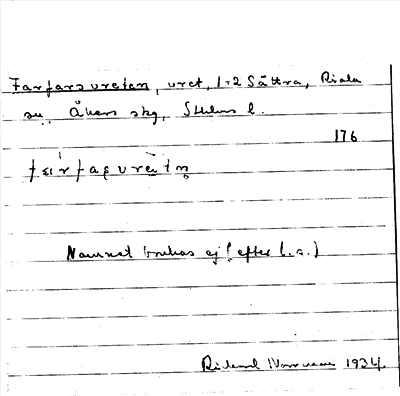 Farfarsvreten, vret, 1-2 Sättra, Riala
sn, Åkers skg, Sthlms l.
176
Namnet brukas ej (efter l.s.)
1934